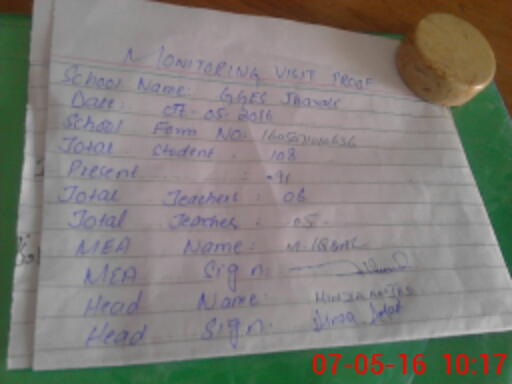 MONITORING VISIT PROOF
School Name: GGES
Date: 07-05-2016
School Form No:
Total Student : 108
Present ......... : 91
Total Teachers: 06
Total Teaches: 05
MEA Name: M. IQBAL
MEA Sign:
Head Name:
Head Sign:
07-05-16 10:17